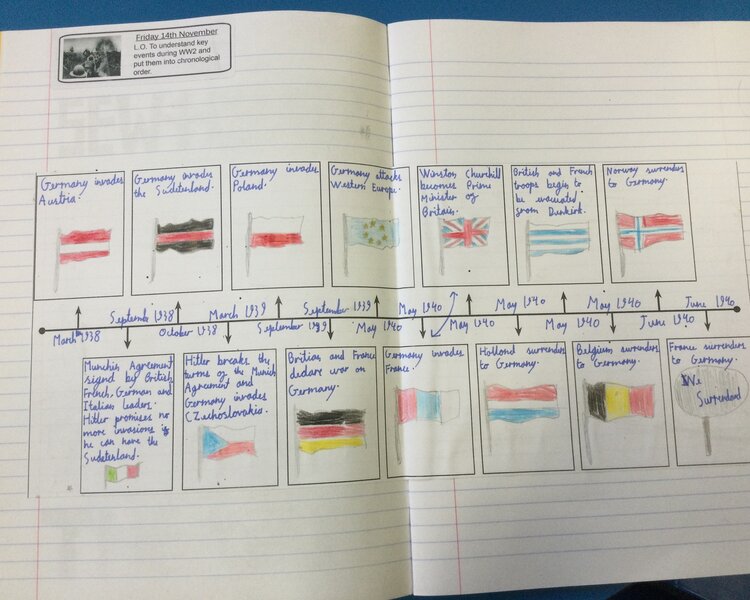 Friday 14th November
L.O. To understand key
events during WW2 and
put them into chronological
order.
Germany invades
Austria.
Germany invades
the Sudetenland.
Germany invades
Poland.
Germany attacks
Western Europe.
Winston Churchill
becomes Prime
Minister of
Britain.
British and French
troops begin to
be evacuated
from Dunkirk.
Norway surrenders
to Germany.
March 1938
September 1938
October 1938
March 1939
September 1939
September 1939
May 1940
May 1940
May 1940
May 1940
May 1940
May 1940
June 1940
June 1940
Munchin Agreement
signed by British
French, German and
Italian leaders.
Hitler promises no
more invasions if
he can have the
Sudetenland.
Hitler breaks the
terms of the Munich
Agreement and
Germany invades
CZechoslovakia.
Britian and France
declare war on
Germany.
Germany invades
France.
Holland surrenders
to Germany.
Belgium surrenders
to Germany.
France surrenders
to Germany.
We
Surrendard